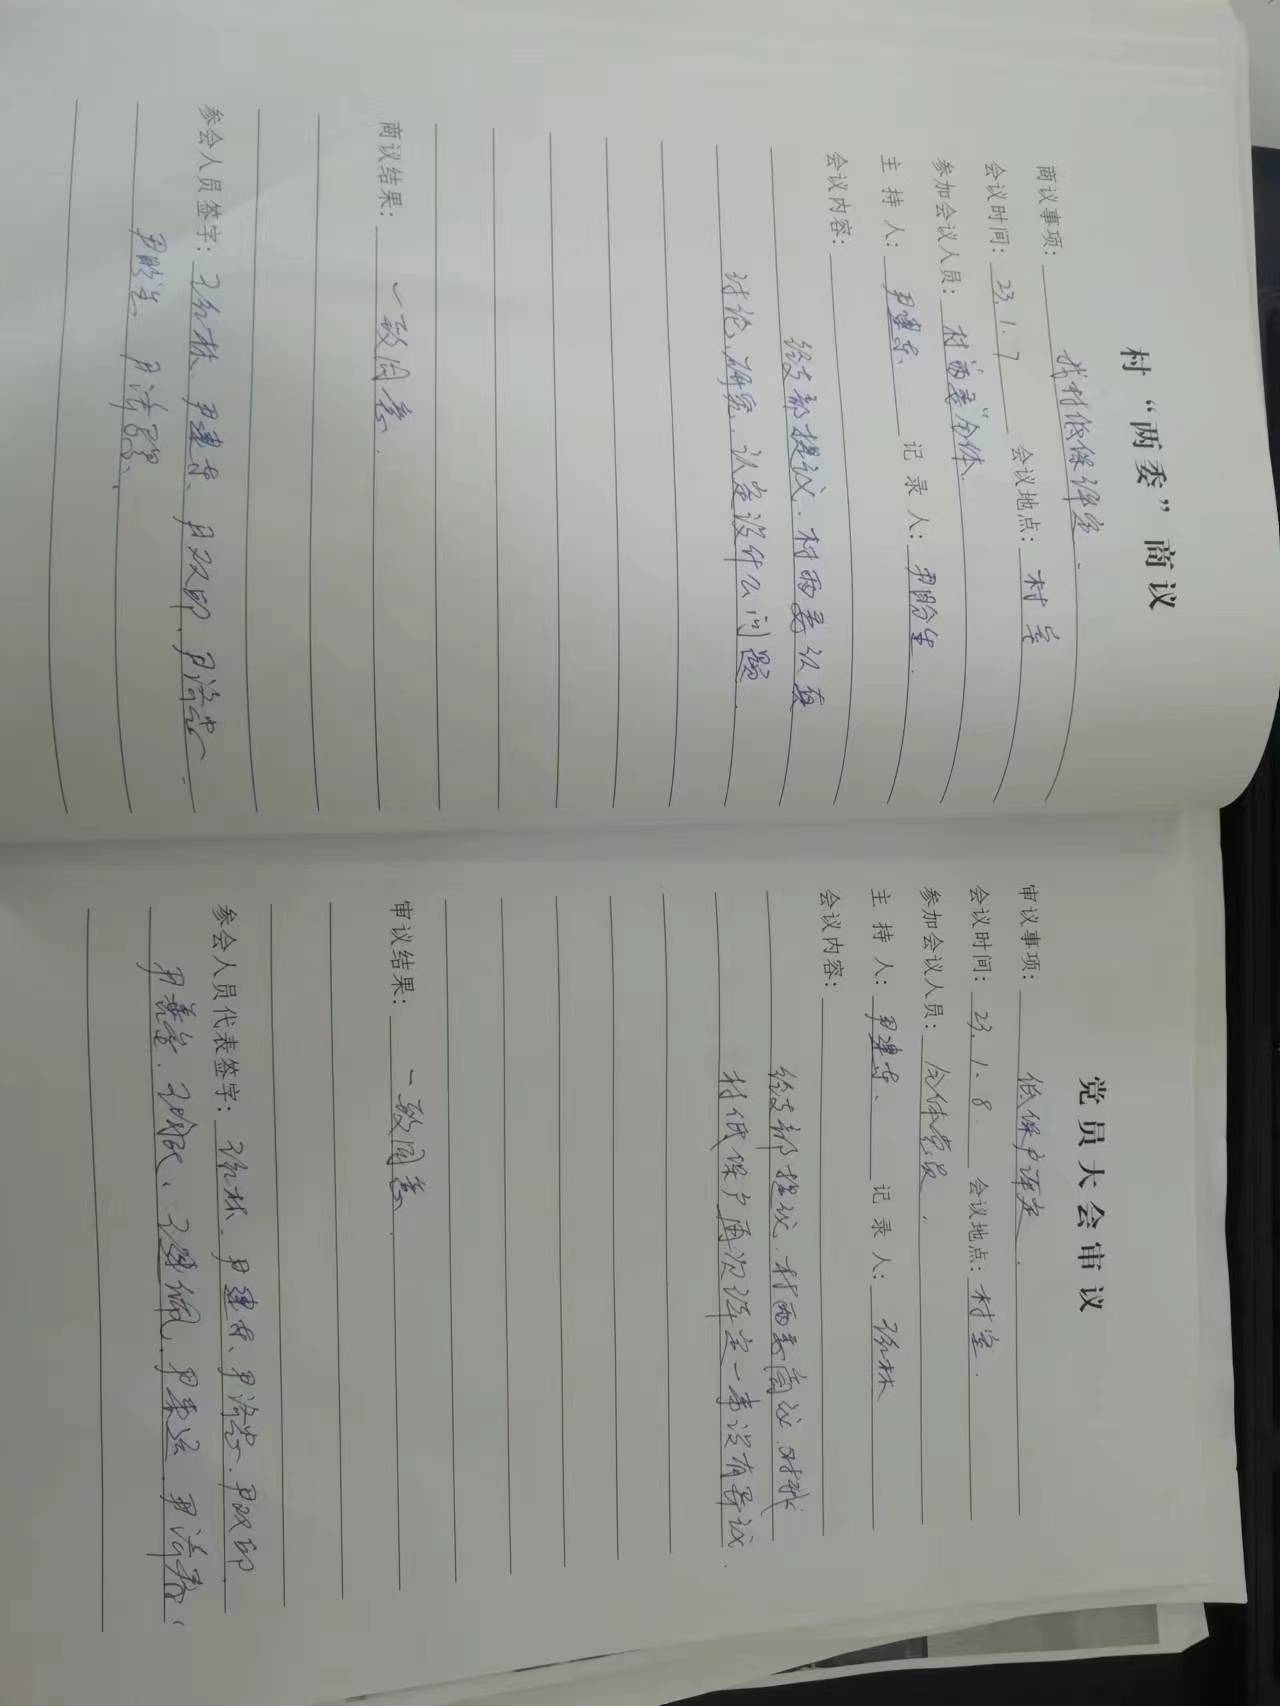 村“两委”商议
商议事项：我村低保评定.
会议时间：23.1.7 会议地点：村室
参加会议人员：村“两委”全体
主持人：尹建东 记录人：尹盼生.
会议内容：
经支部提议.村两委认真
讨论、研究,认定没什么问题.
商议结果：一致同意.
参会人员签字：尹建东、尹双印、
尹盼生
党员大会审议
审议事项：低保户评定.
会议时间：23.1.8 会议地点：村室.
参加会议人员：全体党员.
主持人：尹建东、 记录人：
会议内容：
经支部提议.村两委商议.对我
村低保户再次评定一事没有异议.
审议结果：一致同意.
参会人员代表签字：尹建东、尹双印